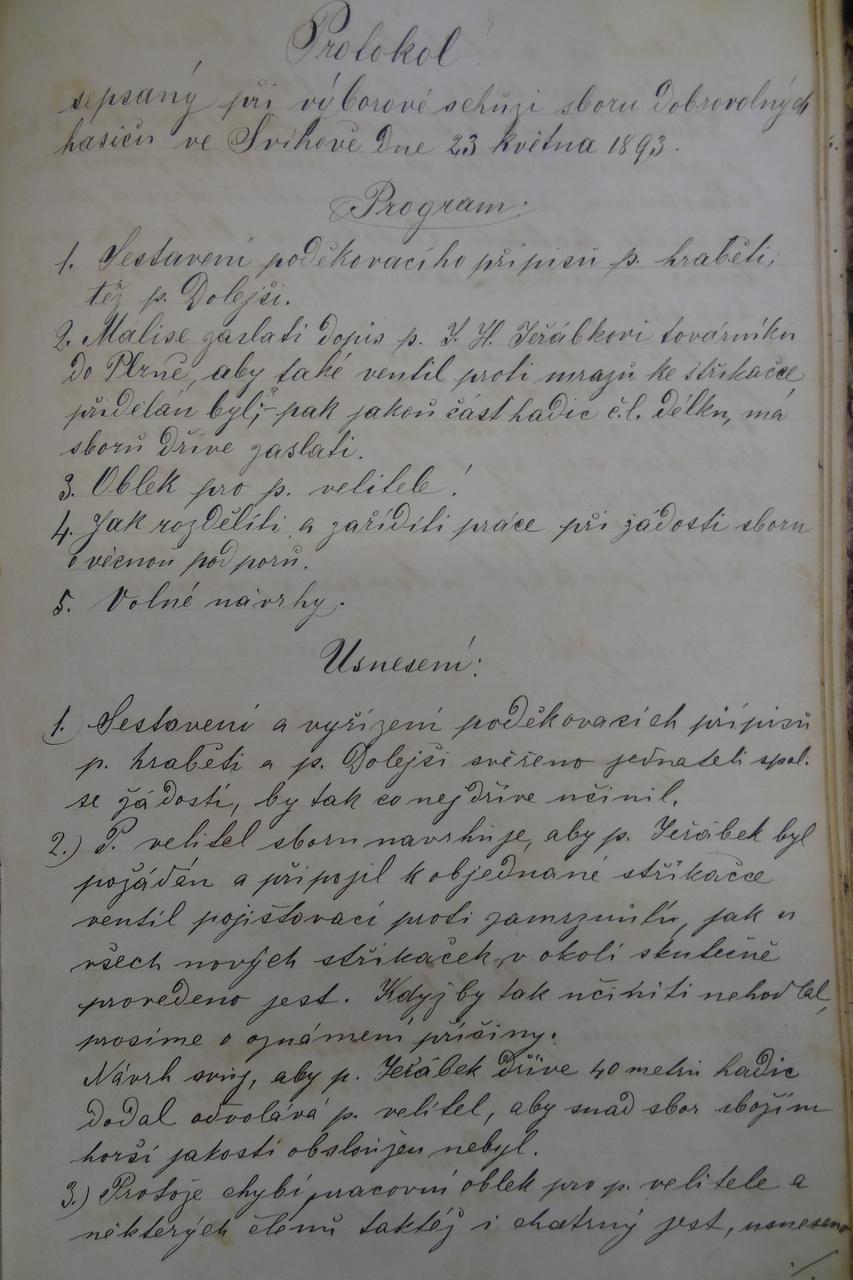 Protokol
sepsaný při výborové schůzi sboru dobrovolných
hasičů ve Švihově dne 23 května 1893.
Program:
1. Sestavení poděkovacího přípisu p. hraběti,
též p. Dolejši.
2. Málise zaslati dopis p. J. H. Jeřábkovi továrníku
do Plzně, aby také ventil proti mrazu ke stříkačce
přidělán byl; pak jakou část hadic č.l. délku, má
sboru dříve zaslati.
3. Oblek pro p. velitele!
4. Jak rozděliti a zaříditi práce při žádosti sboru
o věcnou podporu.
5. Volné návrhy.
Usnesení:
1.) Sestavení a vyřízení poděkovacích přípisů
p. hraběti a p. Dolejši svěřeno jednateli spol.
se žádostí, by tak co nejdříve učinil.
2.) P. velitel sboru navrhuje, aby p. Jeřábek byl
požádán a připojil k objednané stříkačce
ventil pojišťovací proti zamrznutí, jak u
všech nových stříkaček v okolí skutečně
provedeno jest. Kdyžby tak učiniti nehodlal,
prosíme o oznámení příčiny.
Návrh svůj, aby p. Jeřábek dříve 40 metrů hadic
dodal odvolává p. velitel, aby snad sbor zbožím
horší jakosti obsloužen nebyl.
3.) Protože chybí pracovní oblek pro p. velitele a
některých členů taktéž i chatrný jest, usneseno